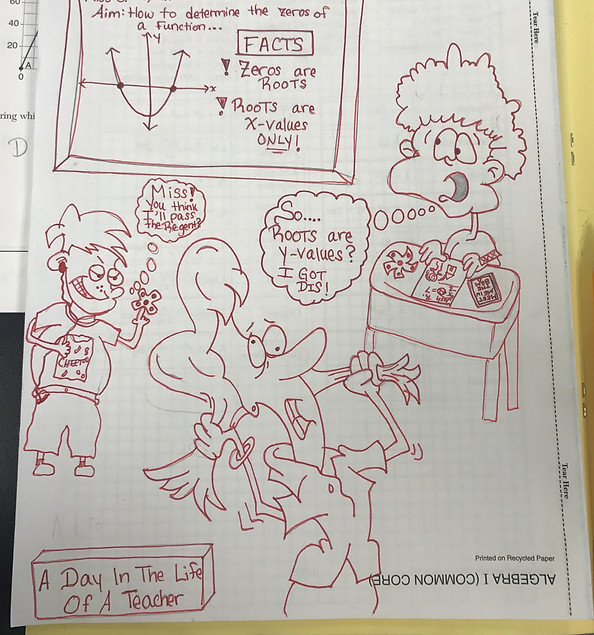 60
40
20
0
A
ring whi
D
Aim: How to determine the zeros of
a function...
y
x
FACTS
! Zeros are
Roots
! Roots are
X-values
ONLY!
Tear Here
Miss!
You think
I'll pass
the Regents?
So....
Roots are
Y-values?
I GOT
DIS!
CHEETOS
A Day In The Life
Of A Teacher
Tear Here
Printed on Recycled Paper
ALGEBRA I (COMMON CORE)